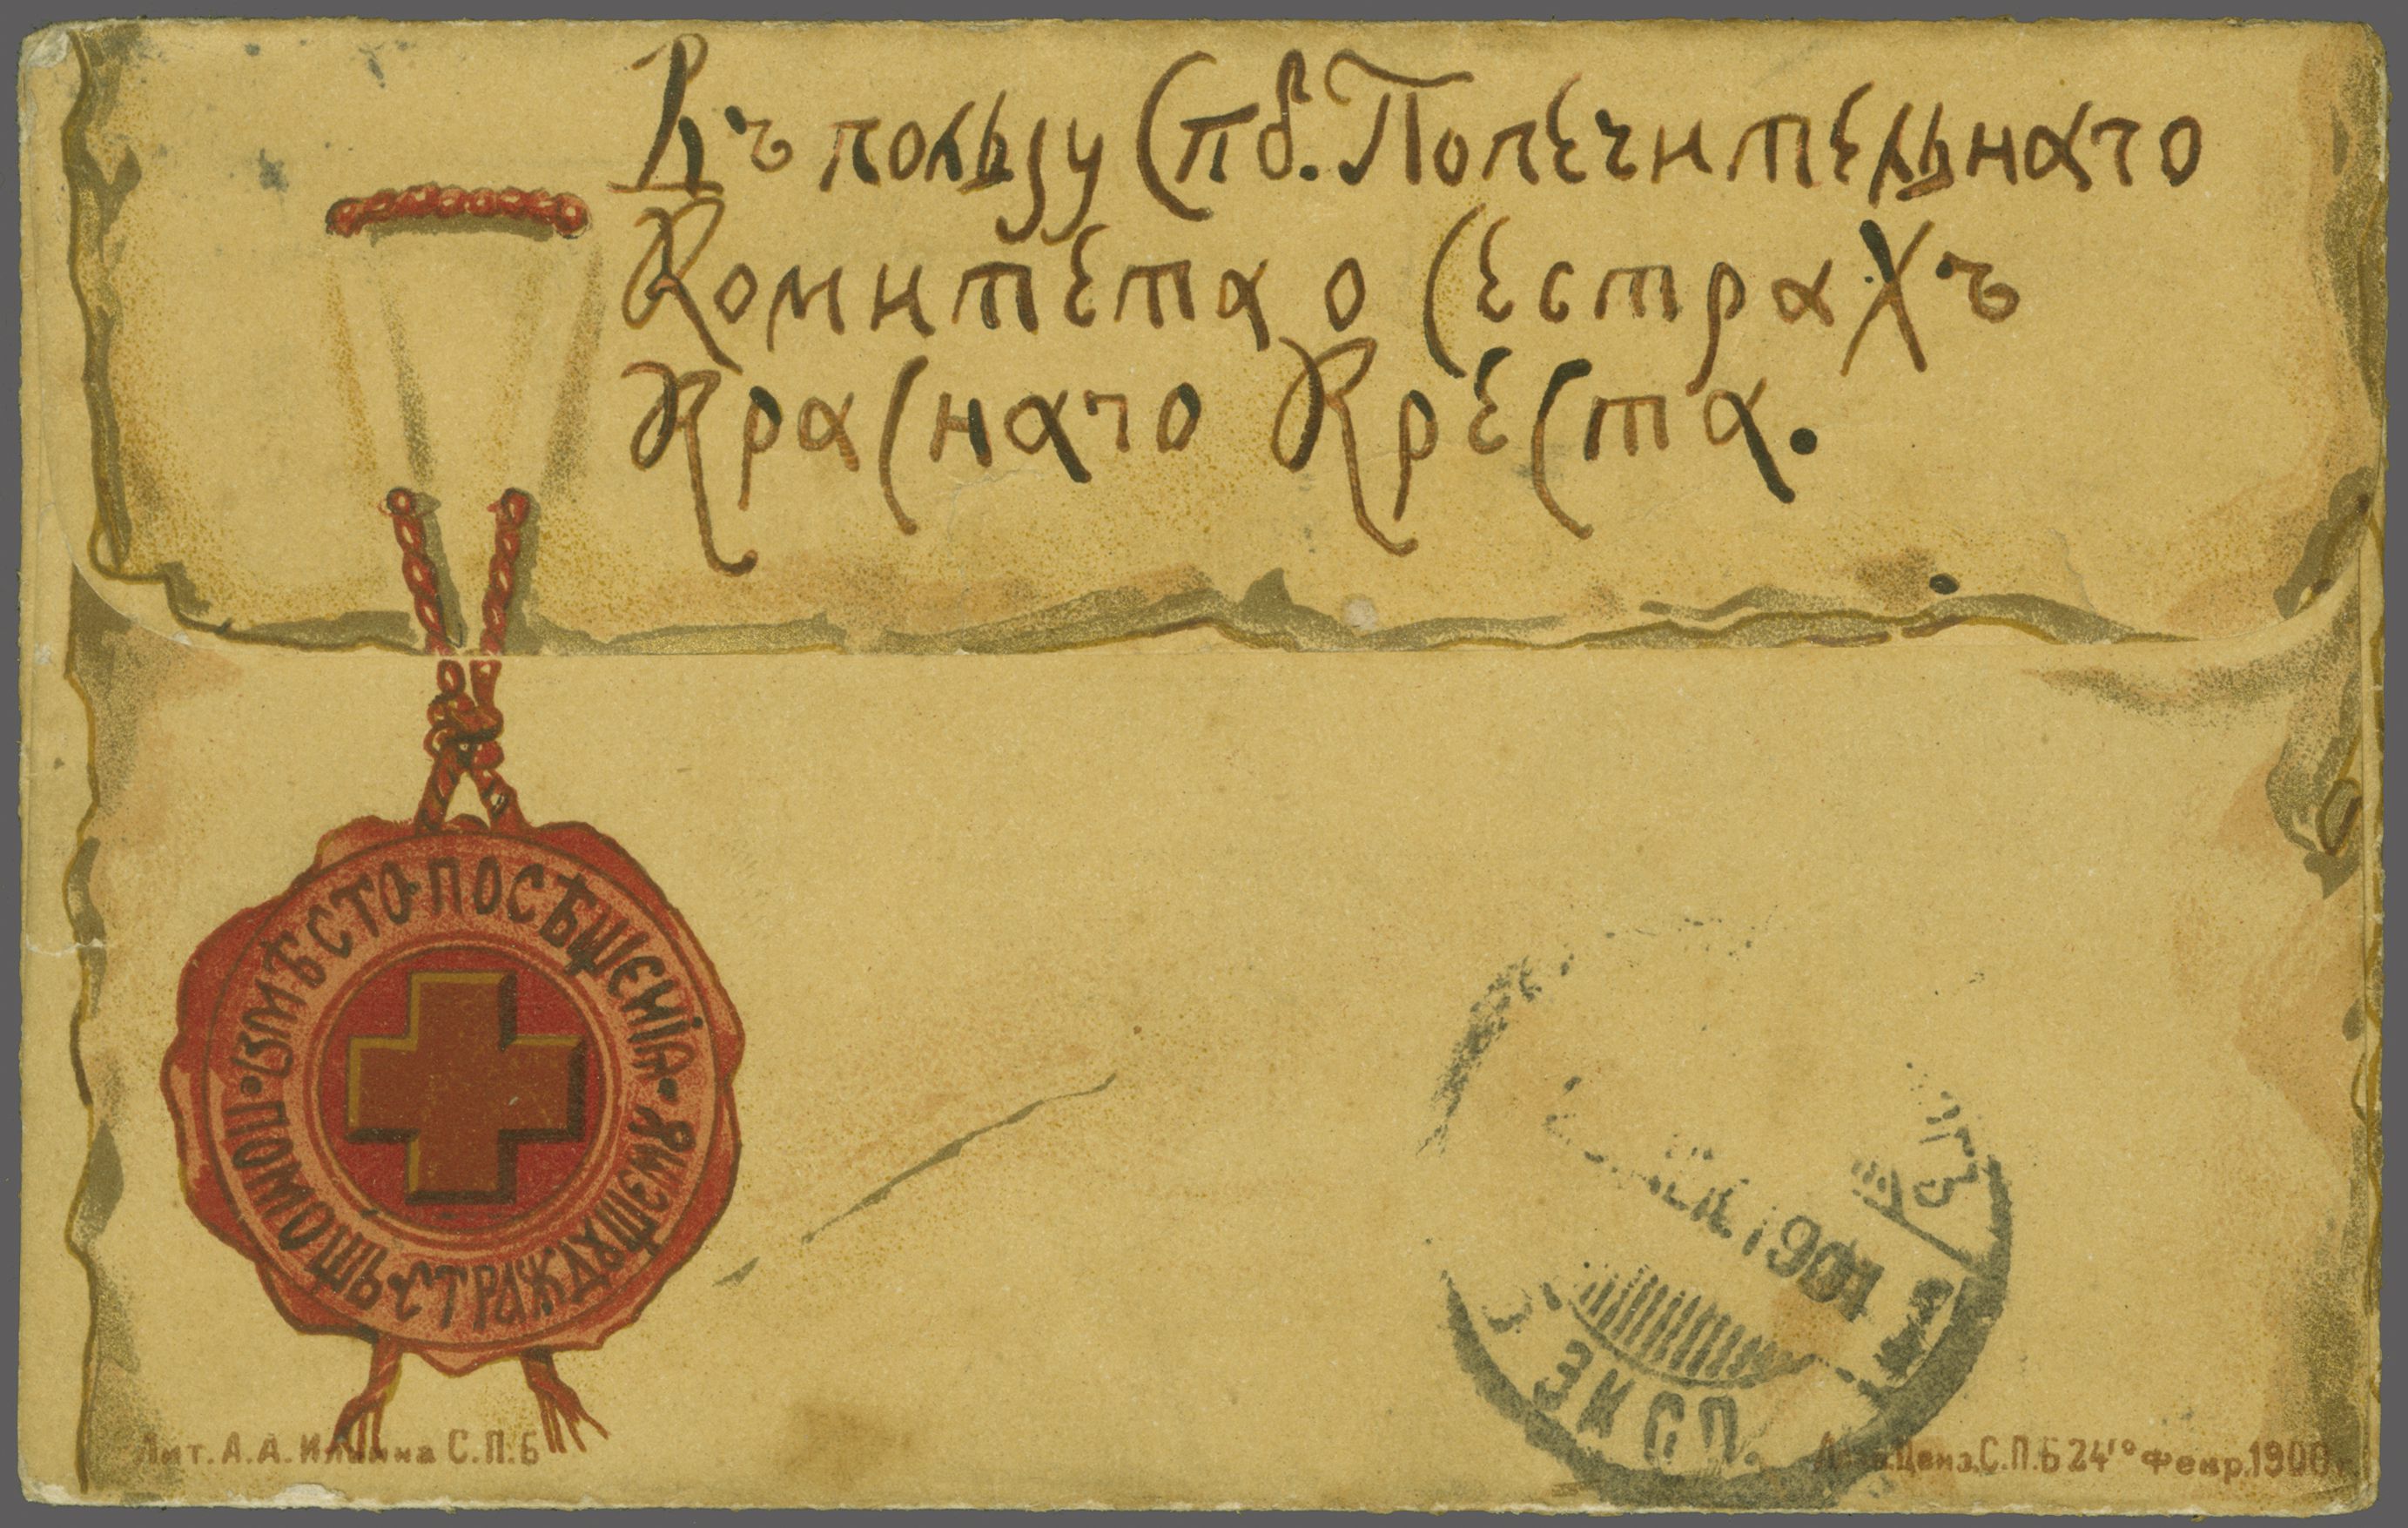 Въ пользу Спб. Попечительнаго
Комитета о Сестрахъ
Краснаго Креста.
ВМѢСТО · ПОСѢЩЕНІЯ · ПОМОЩЬ · СТРАЖДУЩЕМУ
1901
ЭКСП.
Лит. А. А. Ильина С.П.Б
Ценз. С.П.Б 24го Февр. 1900